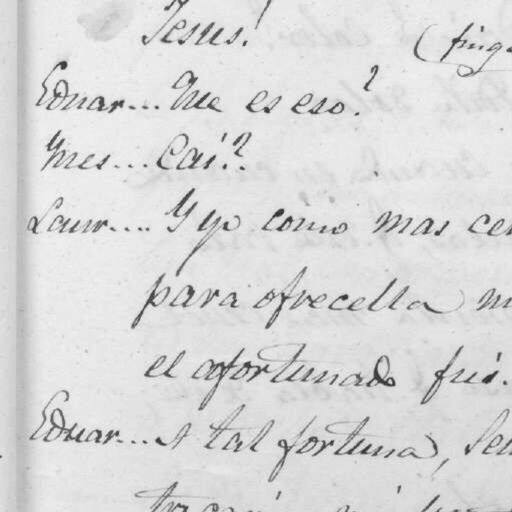 Jesus!
(fing
Eduar... Que es eso?
Ines... Caí?
Laur.... Y yo como mas cer
para ofrecella m
el afortunado fuí.
Eduar... A tal fortuna, Señ